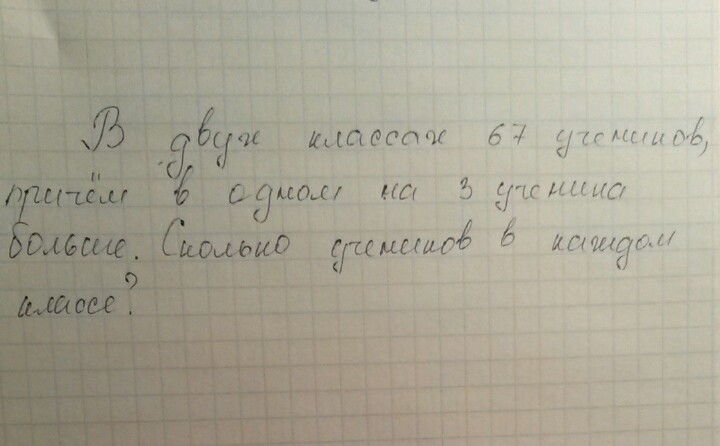 В двух классах 67 учеников,
причём в одном на 3 ученика
больше. Сколько учеников в каждом
классе?